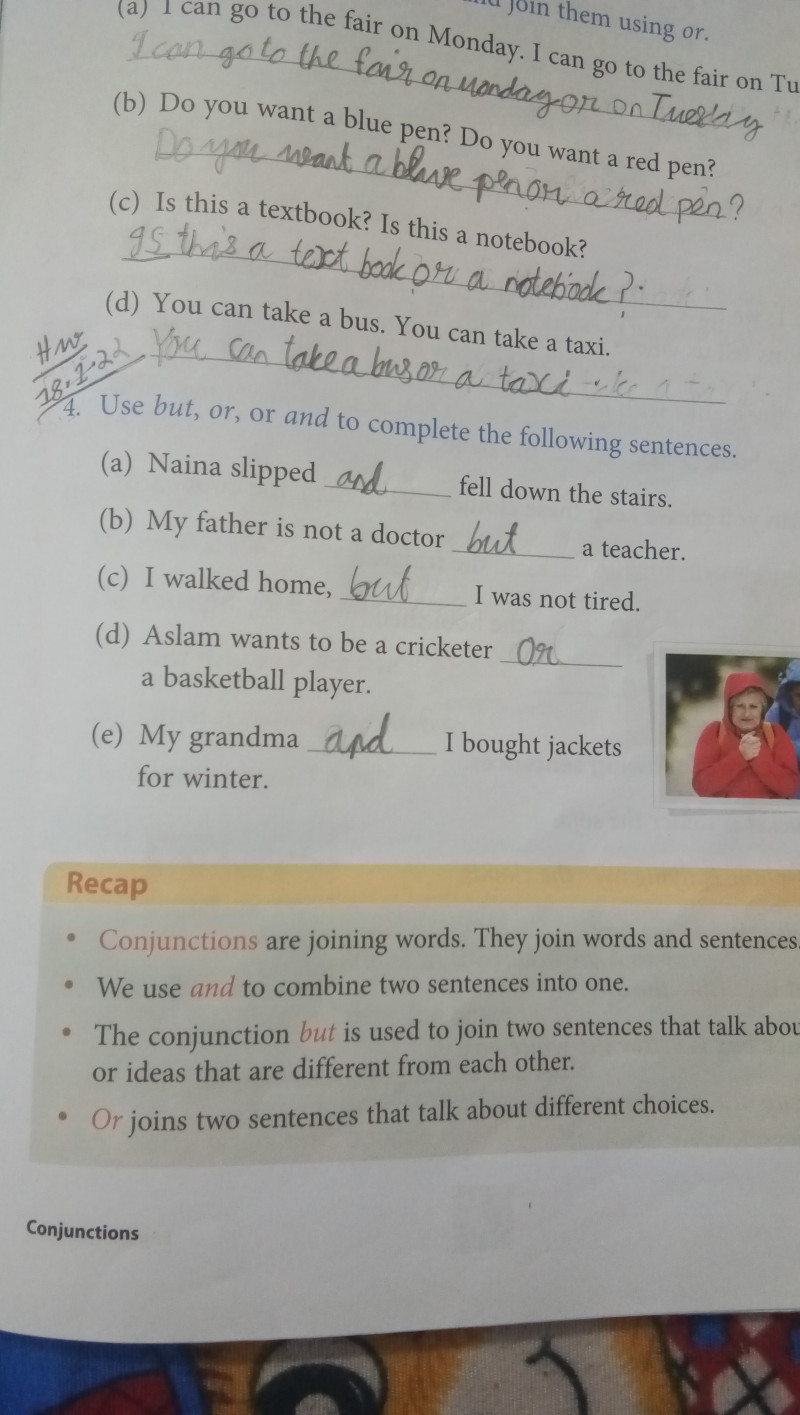 join them using or.
(a) I can go to the fair on Monday. I can go to the fair on Tu
I can go to the fair on Monday or on Tuesday
(b) Do you want a blue pen? Do you want a red pen?
Do you want a blue pen or a red pen?
(c) Is this a textbook? Is this a notebook?
Is this a text book or a notebook?
(d) You can take a bus. You can take a taxi.
You can take a bus or a taxi
HW
18.1.22
4. Use but, or, or and to complete the following sentences.
(a) Naina slipped and fell down the stairs.
(b) My father is not a doctor but a teacher.
(c) I walked home, but I was not tired.
(d) Aslam wants to be a cricketer or
a basketball player.
(e) My grandma and I bought jackets
for winter.
Recap
• Conjunctions are joining words. They join words and sentences.
• We use and to combine two sentences into one.
• The conjunction but is used to join two sentences that talk abou
or ideas that are different from each other.
• Or joins two sentences that talk about different choices.
Conjunctions